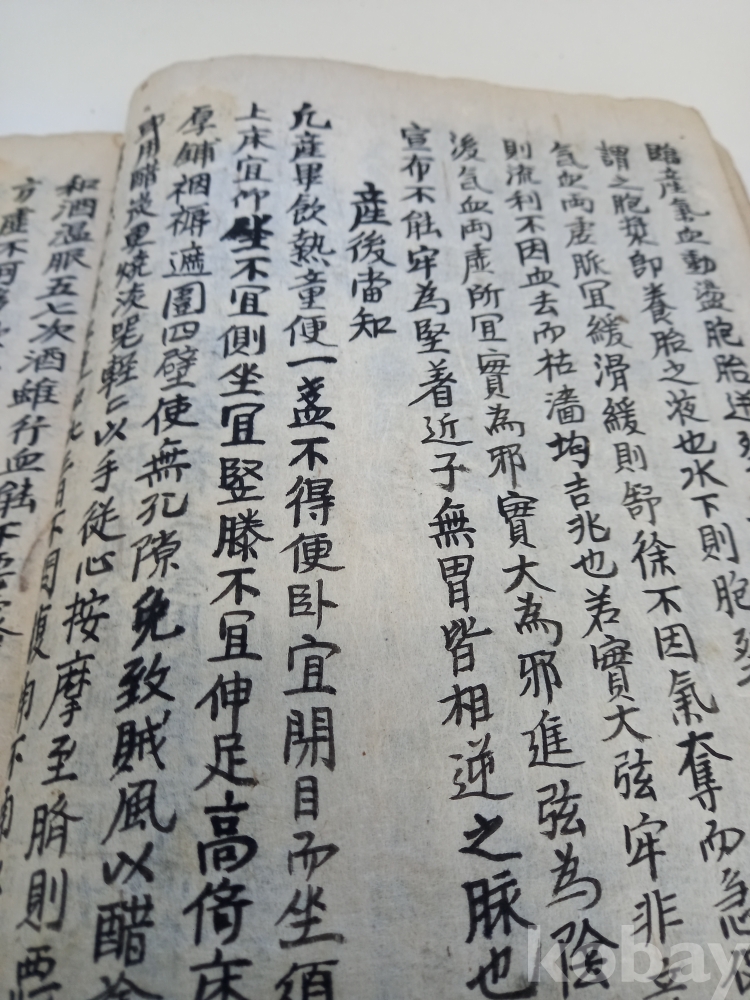 臨產氣血動盪胞胎迸
謂之胞漿即養胎之液也水下則胞
氣血兩虛脈宜緩滑緩則舒徐不因氣奪而急
則流利不因血去而枯濇均吉兆也若實大弦牢非
後氣血兩虛所宜實為邪實大為邪進弦為陰
宣布不能牢為堅著近子無胃皆相逆之脈也
產後當知
凡產畢飲熱童便一盞不得便卧宜閉目而坐須
上床宜仰坐不宜側坐宜竪膝不宜伸足高倚床
厚鋪裀褥遮圍四壁使無孔隙免致賊風以醋
即用醋炭更燒淡呢輕二以手從心按摩至臍則
和酒溫服五七次酒雖行血
方產不可
kobay